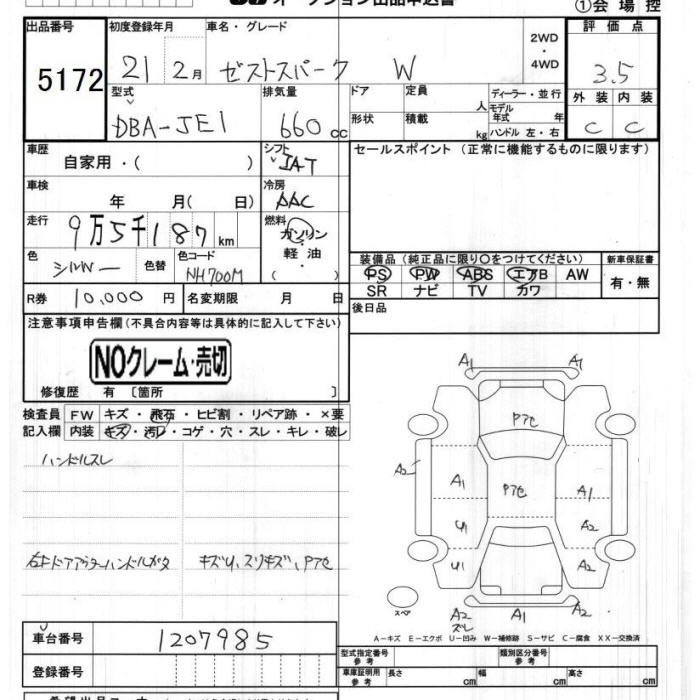 オークション出品申込書 ①会場控
出品番号 初度登録年月 車名・グレード 2WD・4WD 評価点
5172 21 2月 ゼストスパーク W 3.5
型式 排気量 ドア 定員 人 ディーラー・並行 外装 内装
DBA-JE1 660cc 形状 積載 kg モデル年式 年 ハンドル 左・右 C C
車歴 自家用・( ) シフト IAT セールスポイント (正常に機能するものに限ります)
車検 年 月( 日) 冷房 AAC
走行 9万5千187km 燃料 ガソリン
軽油・
( )
色 シルバー 色替 色コード NH700M
装備品 (純正品に限り○をつけてください) 新車保証書
PS PW ABS エアB AW 有・無
SR ナビ TV カワ
R券 10,000円 名変期限 月 日
後日品
注意事項申告欄(不具合内容等は具体的に記入して下さい)
NOクレーム・売切
修復歴 有 [箇所 ]
検査員 FW キズ・飛石・ヒビ割・リペア跡・×要
記入欄 内装 キズ・汚レ・コゲ・穴・スレ・キレ・破レ
ハンドルスレ
右キドアアウターハンドルガタ キズU、スリキズ、Pアセ
A1 A1
Pアセ
A2 A1 Pアセ A1
U1 A2
U1 A2
スペア A2 A1 A2
ズレ
A-キズ E-エクボ U-凹み W-補修跡 S-サビ C-腐食 XX-交換済
車台番号 1207985
型式指定番号 参考 類別区分番号 参考
登録番号
車庫証明用 参考 長さ cm 幅 cm 高さ cm
希望出品コーナー